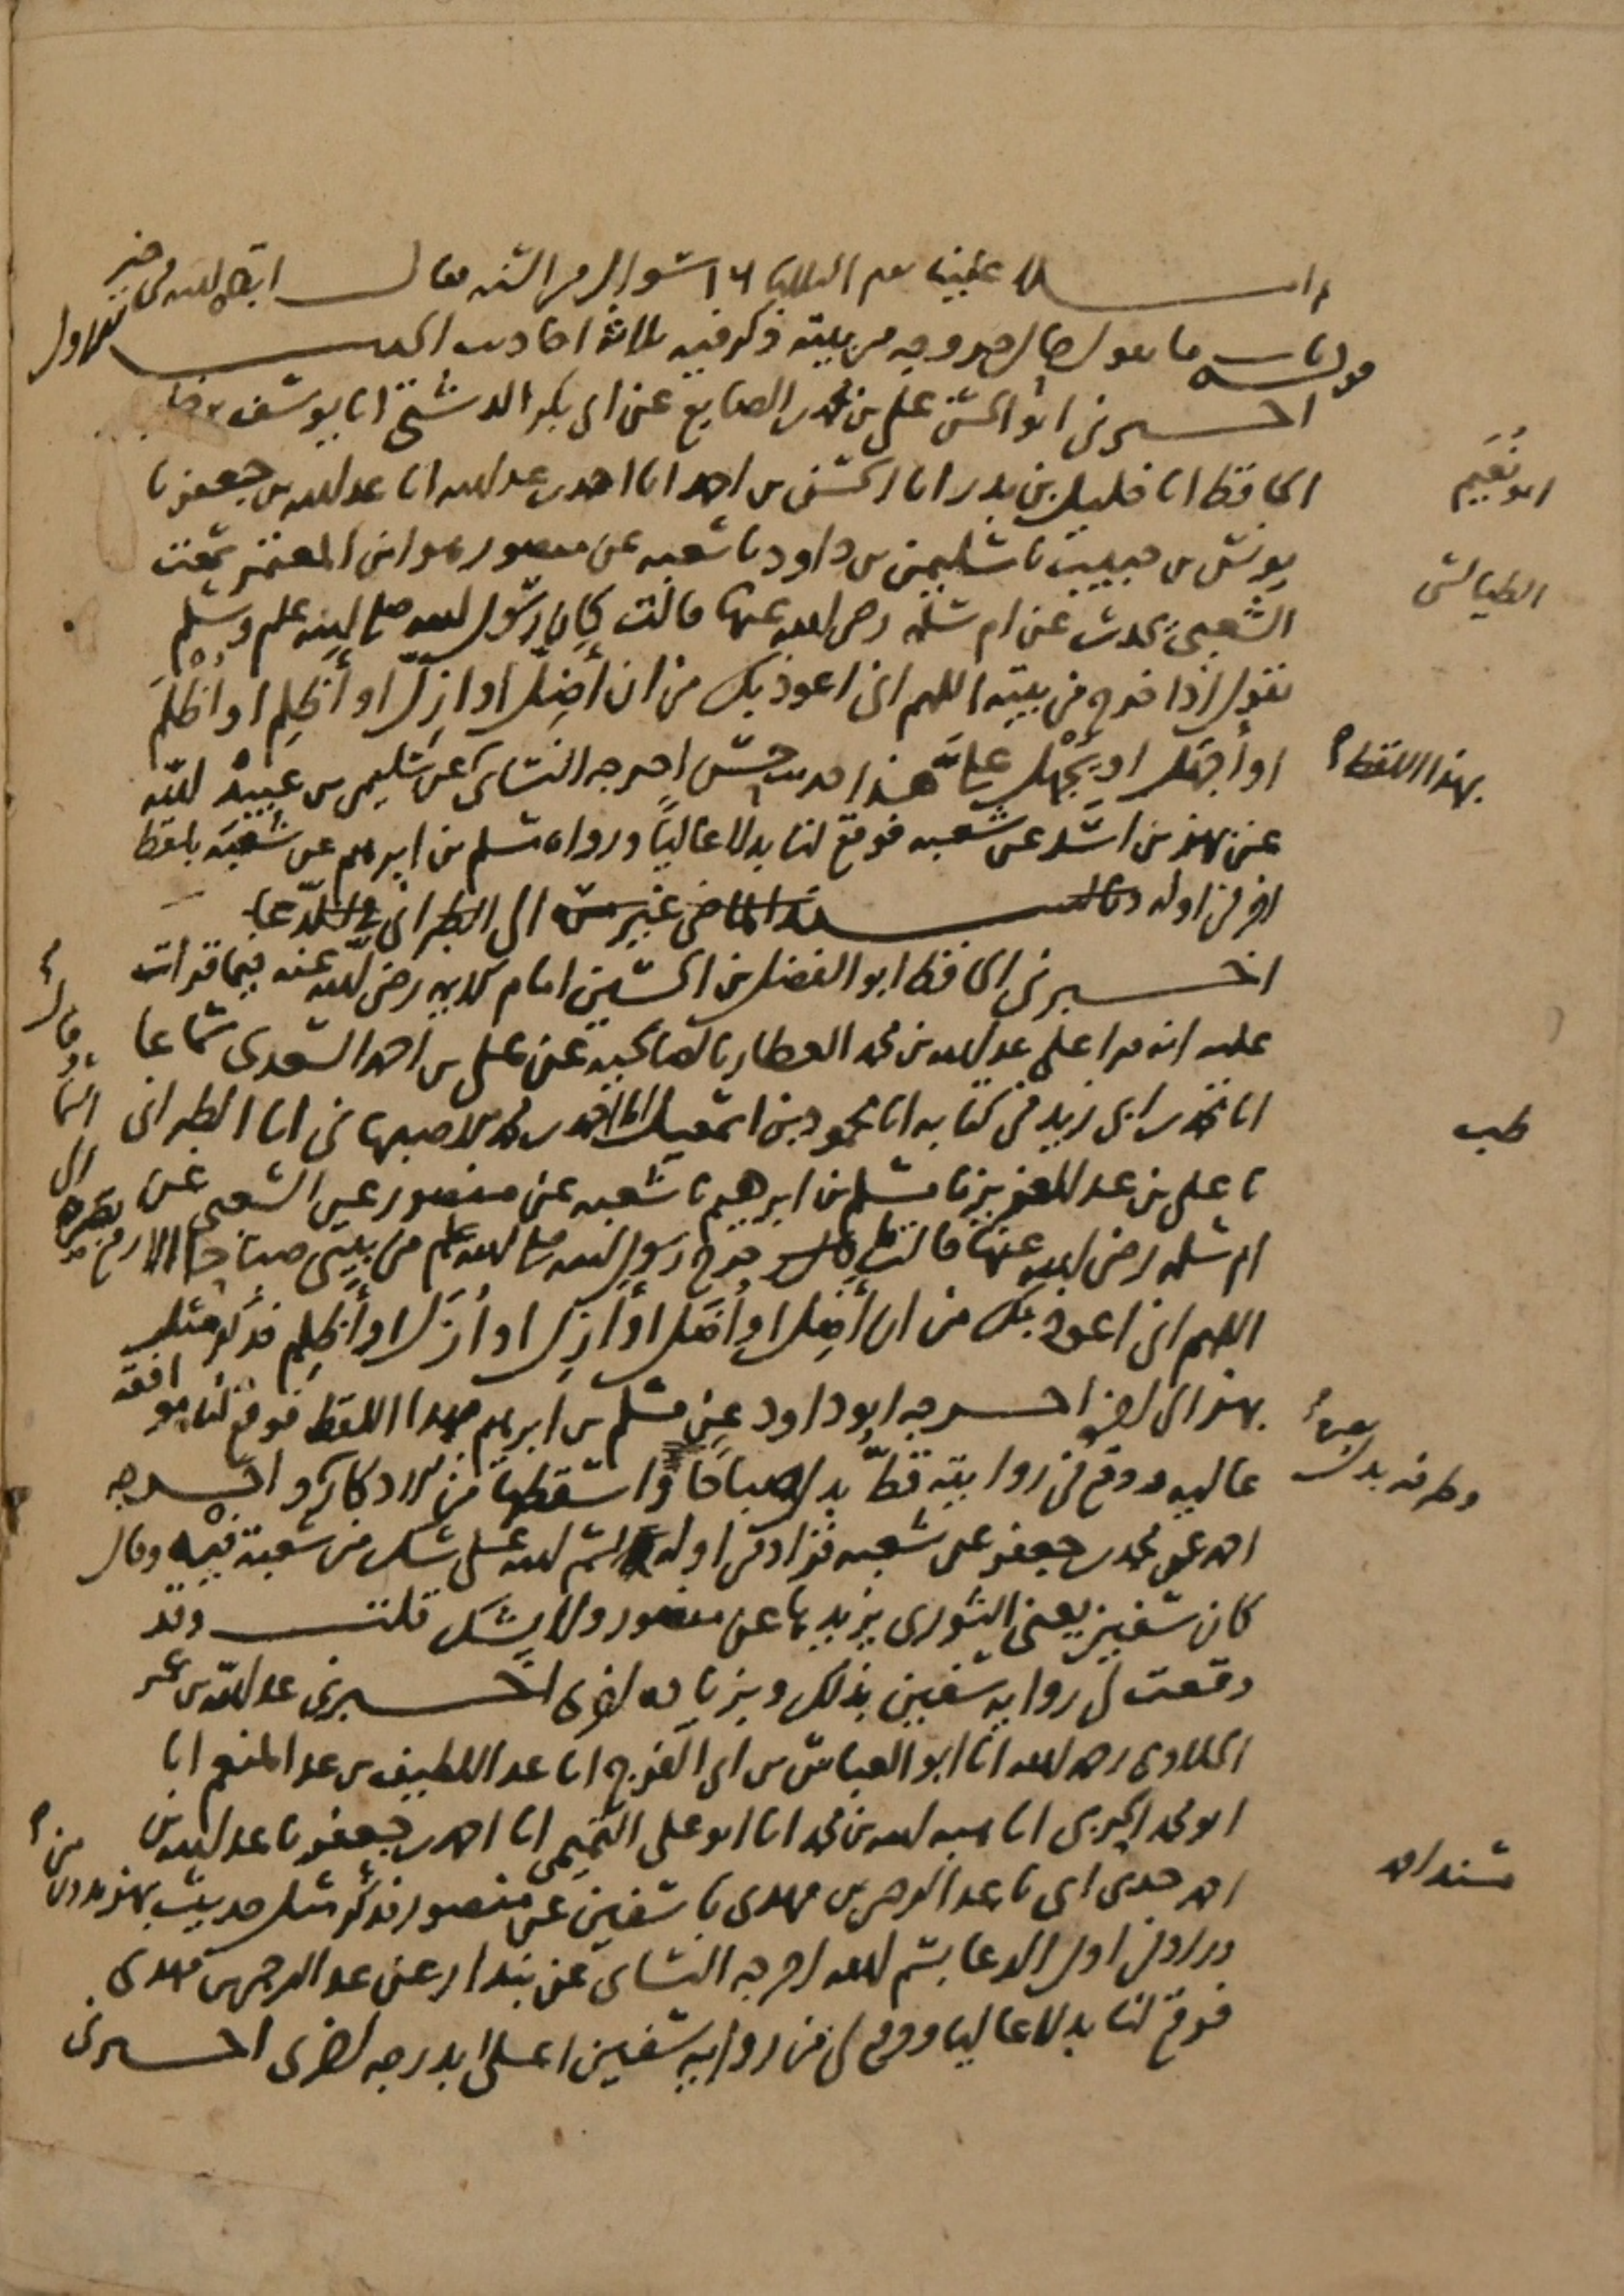 املا علينا يوم الثلاثا ١٦ شوال من السنه فقال ابقاه الله في خير
قوله باب ما يقول حال خروجه من بيته ذكر فيه ثلاثة احاديث الحديث الاول
اخبرني ابو الحسن علي بن محمد الصايغ عن ابي بكر الدشتي انا يوسف بن خليل
الحافظ انا خليل بن بدر انا الحسن بن احمد انا احمد بن عبد الله انا عبد الله بن جعفر نا
ابو نعيم
يونس بن حبيب نا سليمن بن داود نا شعبه عن منصور هو ابن المعتمر سمعت
الطيالسي
الشعبي يحدث عن ام سلمه رضي الله عنها قالت كان رسول الله صلى الله عليه وسلم
يقول اذا خرج من بيته اللهم اني اعوذ بك من ان أضل او ازل او أظلم او أظلم
او أجهل او يجهل علي هذا حديث حسن اخرجه النسائي عن سليمن بن عبيد الله
بهذا اللفظ
عن بهز بن اسد عن شعبه فوقع لنا بدلا عاليا ورواه مسلم بن ابرهيم عن شعبة بلفظ
اخر في اوله وبالسند الماضي الى الطبراني في الدعا
اخبرني الحافظ ابو الفضل بن الحسين امام رضي الله عنه فيما قرأت
عليه انه قرا على عبد الله بن محمد العطار بالصالحيه عن علي بن احمد السعدي سماعا
انا محمد بن ابي زيد في كتابه انا محمود بن اسمعيل انا احمد بن محمد الاصبهاني انا الطبراني
طب
نا علي بن عبد العزيز نا مسلم بن ابرهيم نا شعبه عن منصور عن الشعبي عن
ام سلمه رضي الله عنها قالت ما خرج رسول الله صلى الله عليه وسلم من بيتي صباحا الا رفع بصره الى السما وقال
اللهم اني اعوذ بك من ان أضل او أضل او أزل او أزل او أظلم فذكر مثله
بهز الى اخره اخرجه ابو داود عن مسلم بن ابرهيم بهذا اللفظ فوقع لنا موافقه
عاليه ووقع في روايته قط بدل صباحا واسقطها من الاذكار واخرجه
وطرفه بدل بصره
احمد عن محمد بن جعفر عن شعبه فزاد في اوله بسم الله على شك من شعبة فيه وقال
كان سفين يعني الثوري يزيدها عن منصور ولا يشك قلت وقد
وقعت لي رواية سفين بذلك وبزيادة اخرى اخبرني عبد الله بن عمر
الحلاوي رحمه الله انا ابو العباس بن ابي الفرج انا عبد اللطيف بن عبد المنعم انا
ابو محمد الحربي انا هبه الله بن محمد انا ابو علي التميمي انا احمد بن جعفر نا عبد الله بن
احمد حدثني ابي نا عبد الرحمن بن مهدي نا سفين عن منصور فذكر مثل حديث بهز بدون من
مسند احمد
وزاد في اول الدعا بسم الله اخرجه النسائي عن بندار عن عبد الرحمن بن مهدي
فوقع لنا بدلا عاليا ووقع لي من رواية سفين اعلى بدرجه اخرى اخبرني